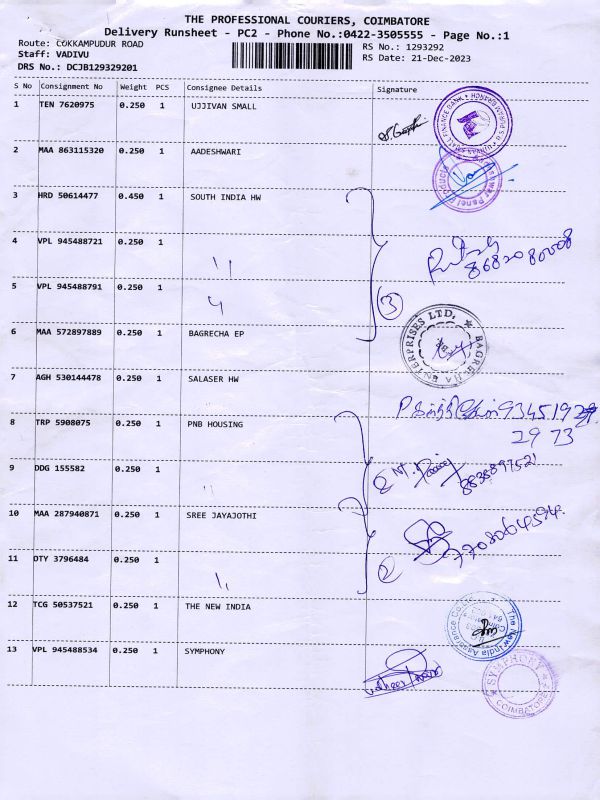 THE PROFESSIONAL COURIERS, COIMBATORE
Delivery Runsheet - PC2 - Phone No.:0422-3505555 - Page No.:1
Route: COKKAMPUDUR ROAD
Staff: VADIVU
DRS No.: DCJB129329201
RS No.: 1293292
RS Date: 21-Dec-2023
S No Consignment No Weight PCS Consignee Details Signature
1 TEN 7620975 0.250 1 UJJIVAN SMALL
2 MAA 863115320 0.250 1 AADESHWARI
3 HRD 50614477 0.450 1 SOUTH INDIA HW
4 VPL 945488721 0.250 1 "
8682080008
5 VPL 945488791 0.250 1 "
3
6 MAA 572897889 0.250 1 BAGRECHA EP
ENTERPRISES LTD.
7 AGH 530144478 0.250 1 SALASER HW
8 TRP 5908075 0.250 1 PNB HOUSING
29 73
9 DDG 155582 0.250 1 "
8838897521
10 MAA 287940871 0.250 1 SREE JAYAJOTHI
7708064594
11 DTY 3796484 0.250 1 "
2
12 TCG 50537521 0.250 1 THE NEW INDIA
The New India Assurance Co.
13 VPL 945488534 0.250 1 SYMPHONY
SYMPHONY
COIMBATORE